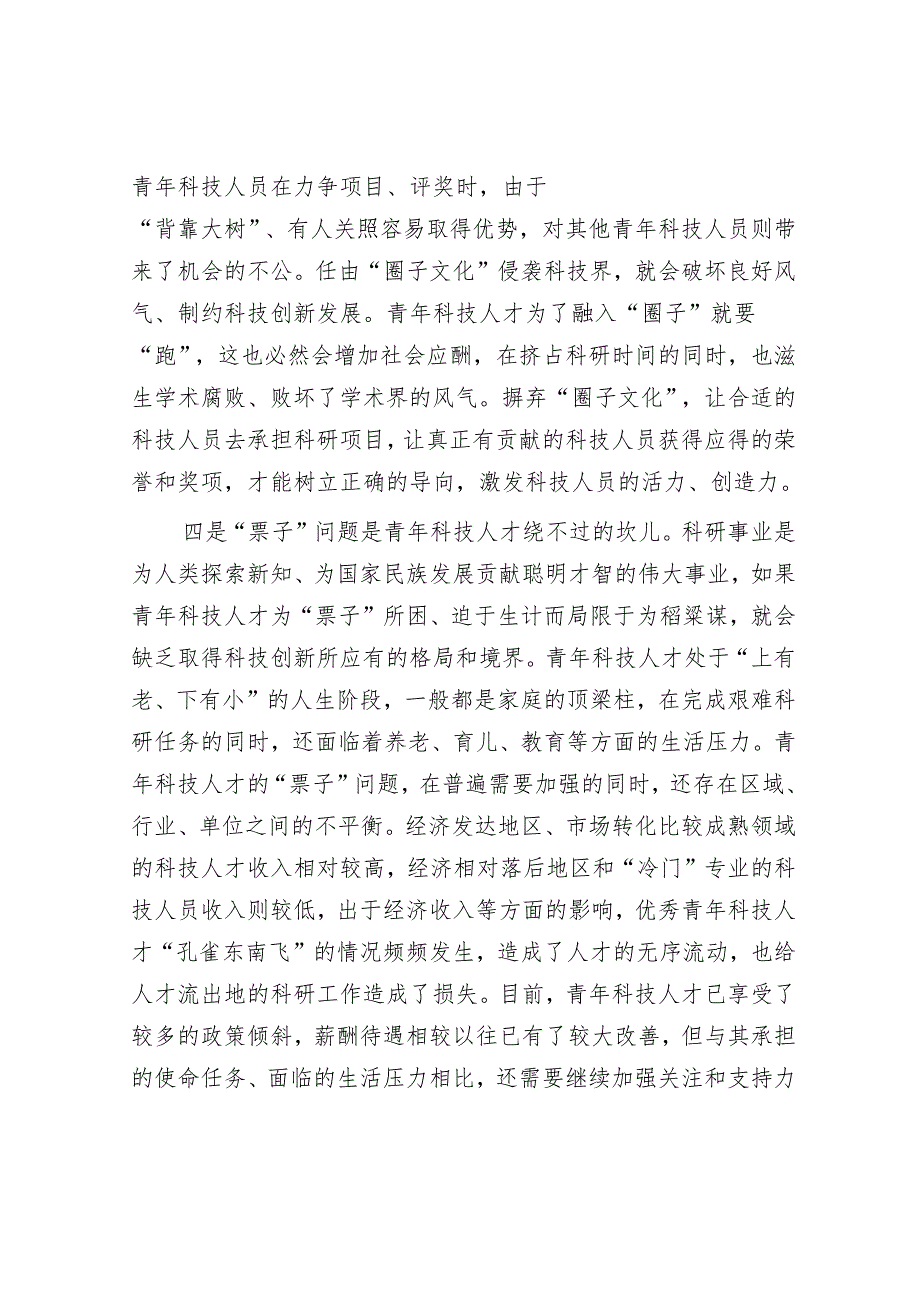 青年科技人员在力争项目、评奖时，由于
“背靠大树”、有人关照容易取得优势，对其他青年科技人员则带
来了机会的不公。任由“圈子文化”侵袭科技界，就会破坏良好风
气、制约科技创新发展。青年科技人才为了融入“圈子”就要
“跑”，这也必然会增加社会应酬，在挤占科研时间的同时，也滋
生学术腐败、败坏了学术界的风气。摒弃“圈子文化”，让合适的
科技人员去承担科研项目，让真正有贡献的科技人员获得应得的荣
誉和奖项，才能树立正确的导向，激发科技人员的活力、创造力。
四是“票子”问题是青年科技人才绕不过的坎儿。科研事业是
为人类探索新知、为国家民族发展贡献聪明才智的伟大事业，如果
青年科技人才为“票子”所困、迫于生计而局限于为稻粱谋，就会
缺乏取得科技创新所应有的格局和境界。青年科技人才处于“上有
老、下有小”的人生阶段，一般都是家庭的顶梁柱，在完成艰难科
研任务的同时，还面临着养老、育儿、教育等方面的生活压力。青
年科技人才的“票子”问题，在普遍需要加强的同时，还存在区域、
行业、单位之间的不平衡。经济发达地区、市场转化比较成熟领域
的科技人才收入相对较高，经济相对落后地区和“冷门”专业的科
技人员收入则较低，出于经济收入等方面的影响，优秀青年科技人
才“孔雀东南飞”的情况频频发生，造成了人才的无序流动，也给
人才流出地的科研工作造成了损失。目前，青年科技人才已享受了
较多的政策倾斜，薪酬待遇相较以往已有了较大改善，但与其承担
的使命任务、面临的生活压力相比，还需要继续加强关注和支持力